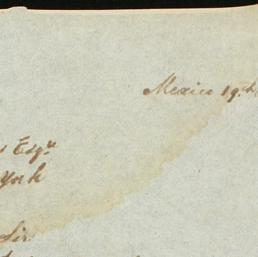 Mexico 19th
Esqr
York
Sir